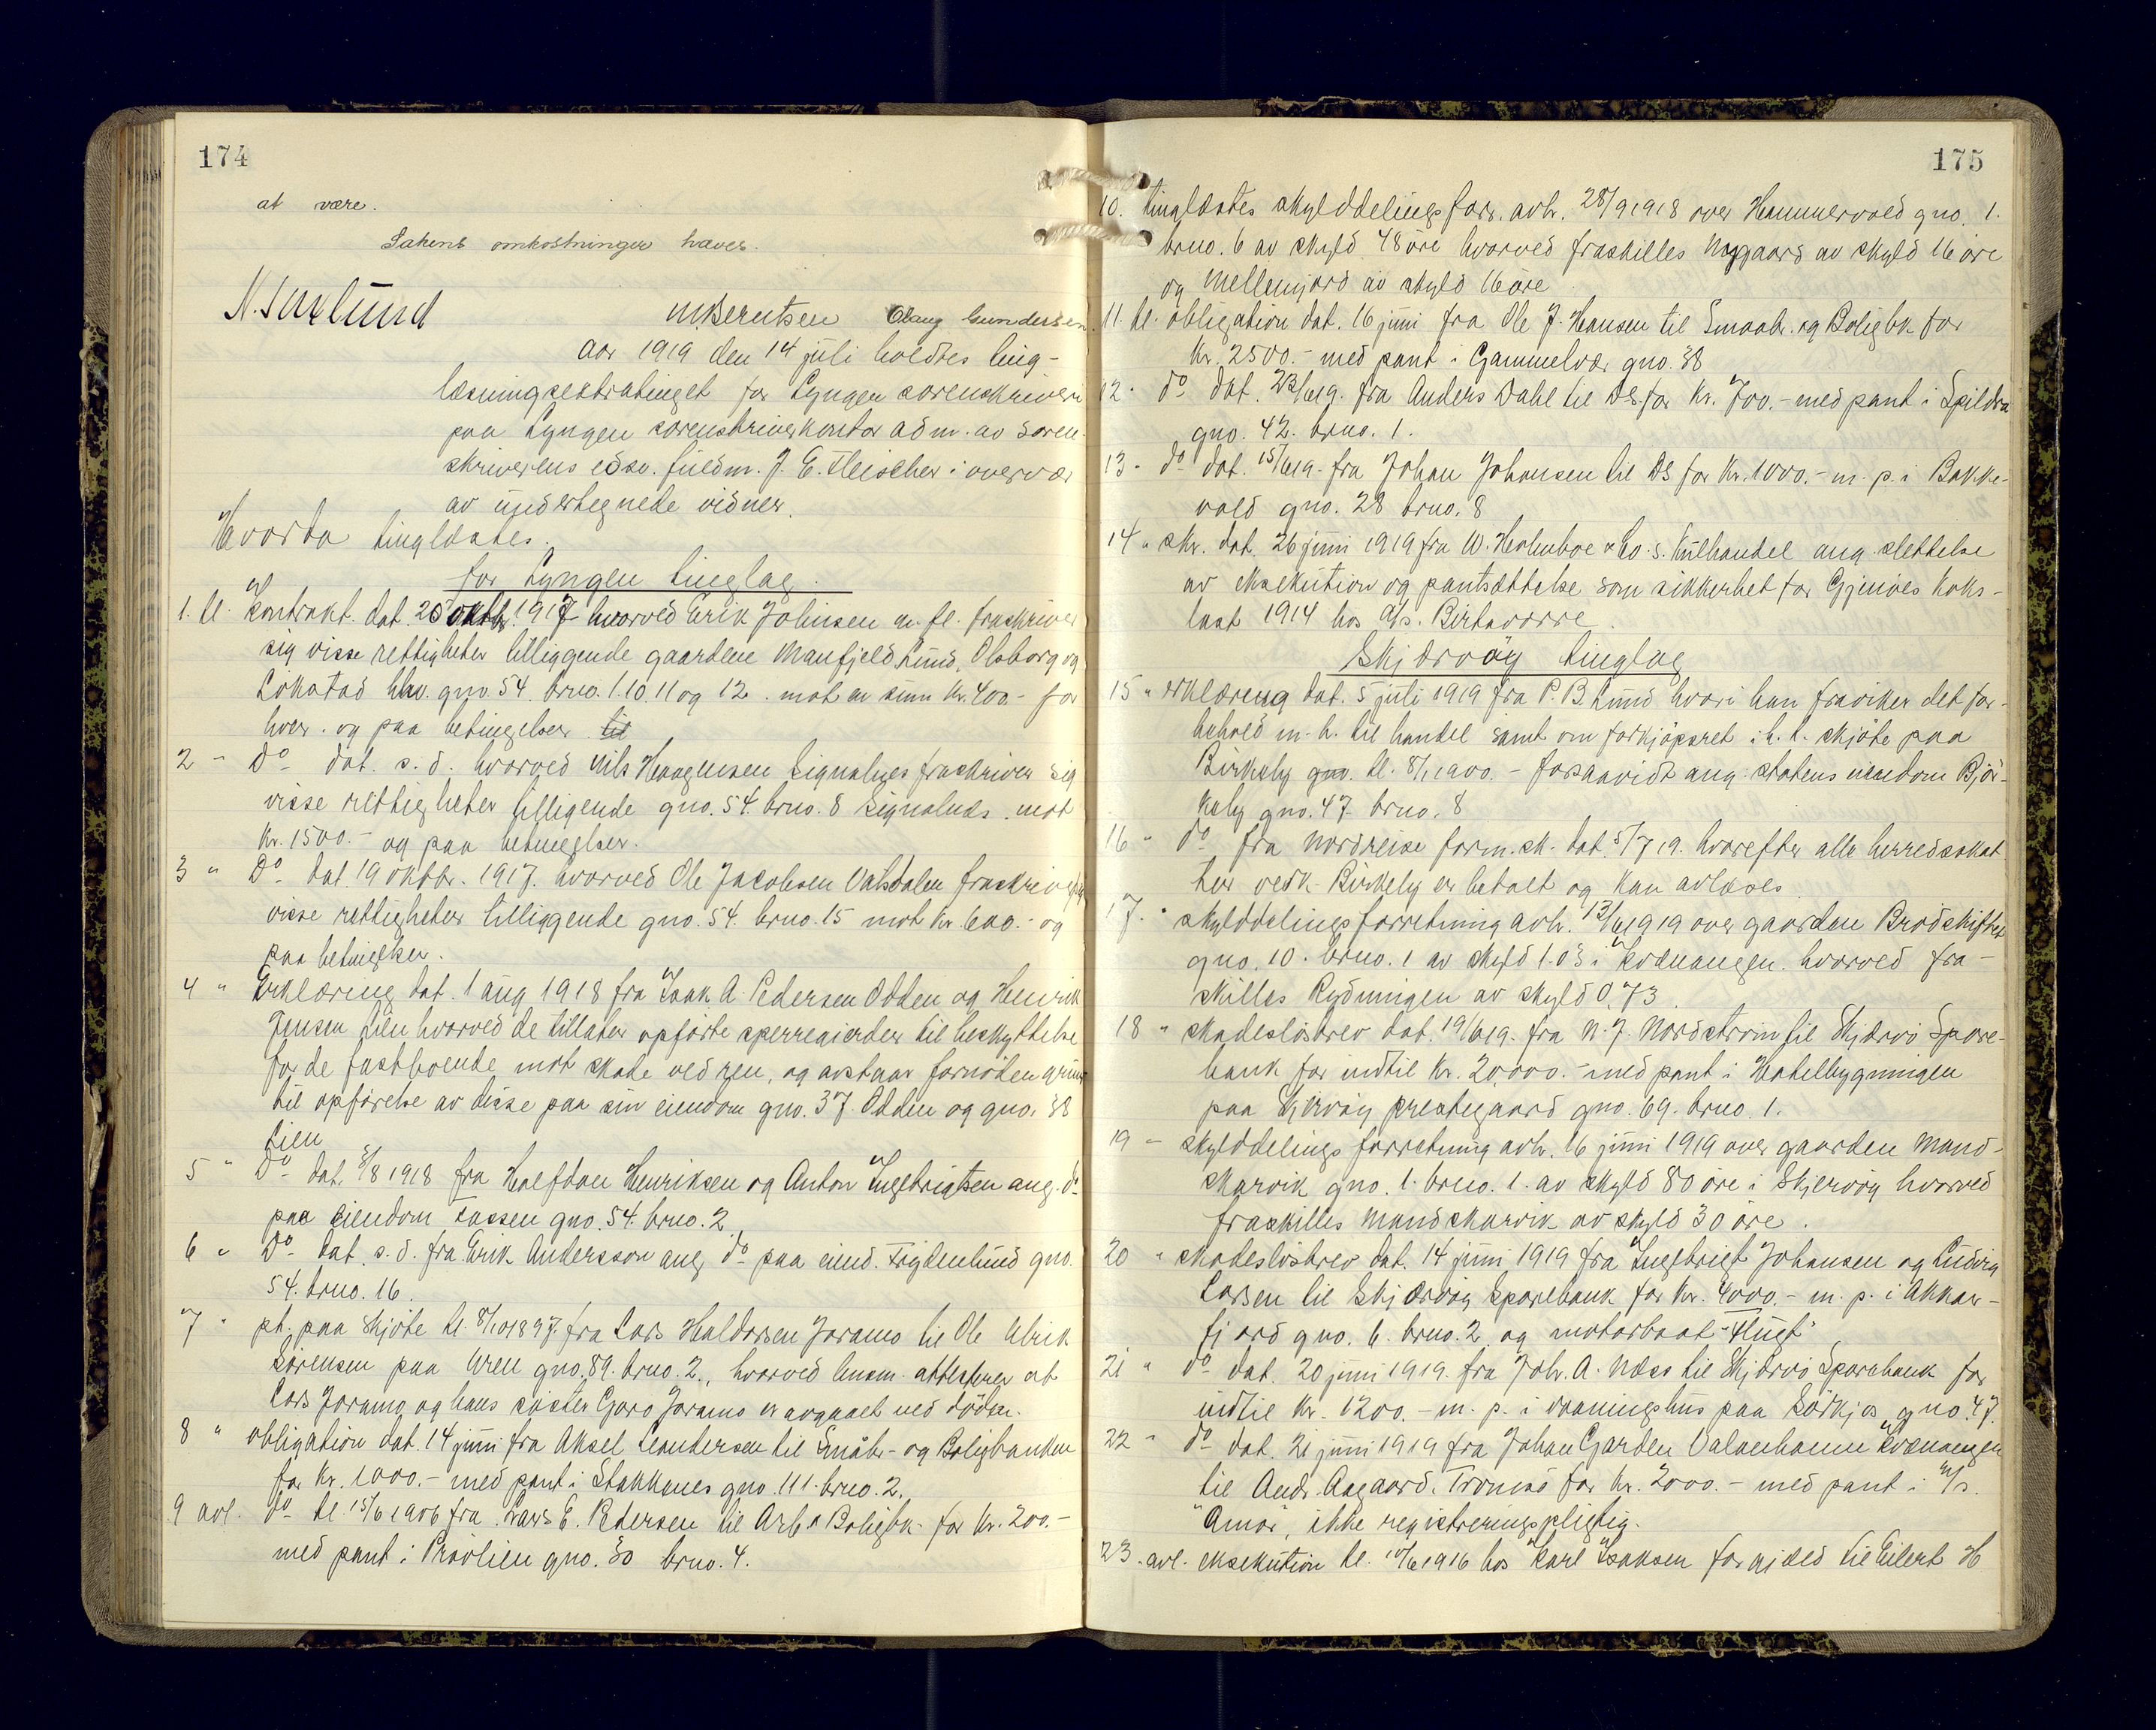 174
at være.
Sakens omkostninger hæves.
N. Saxlund
M Berntsen Olaug Gundersen.
Aar 1919 den 14 juli holdtes ting-
læsningsextratinget for Lyngen sorenskriveri
paa Lyngen sorenskriverkontor adm. av soren-
skriverens edsv. fuldm. J. E. Fleischer i overvær
av undertegnede vidner.
Hvorda tinglæstes.
for Lyngen tinglag.
1. tl. kontrakt. dat. 20 oktbr. 1917 hvorved Erik Johnsen m. fl. fraskriver
sig visse rettigheter tilliggende gaardene Manfjeld, Lund, Olsborg og
Løkstad hhv. gno. 54. brno. 1. 10. 11 og 12. mot en sum Kr. 400.- for
hver. og paa betingelser til
2 - Do dat. s. d. hvorved Nils Haagensen Signalnes fraskriver sig
visse rettigheter tilligende gno. 54. brno. 8 Signalnds. mot
Kr. 1500.- og paa betingelser.
3 " Do dat. 19 oktbr. 1917. hvorved Ole Jacobsen Valsdalen fraskriver sig
visse rettigheter tilliggende gno. 54. brno. 15 mot Kr. 600.- og
paa betingelser.
4 " Erklæring dat. 1 aug 1918 fra Isak A. Pedersen Odden og Henrik
Jensen Lien hvorved de tillater opførte sperregjerder til beskyttelse
for de fastboende mot skade ved ren, og avstaar fornøden grund
til opførelse av disse paa sin eiendom gno. 37 Odden og gno. 38
Lien
5 " Do dat. 5/8 1918 fra Halfdan Henriksen og Anton Ingebrigtsen ang. do
paa eiendom Fossen gno. 54. brno. 2.
6 " Do dat. s. d. fra Erik Andersson ang. do paa eiend. Frydenlund gno.
54. brno. 16.
7 " pt. paa skjøte tl. 8/10 1897. fra Lars Haldorsen Joramo til Ole Ulrik
Sørensen paa Uren gno. 89. brno. 2., hvorved lensm. attesterer at
Lars Joramo og hans søster Goro Joramo er avgaaet ved døden.
8 " obligation dat. 14 juni fra Aksel Leandersen til Småbr- og Boligbanken
for Kr. 1000.- med pant i Stakkenes gno. 111. brno. 2.
9 avl. do tl. 15/6 1906 fra Lars E. Pedersen til Arb & Boligbk. for Kr. 200.-
med pant i Prøvlien gno. 30 brno. 4.
175
10. tinglæstes skylddelingsforr. avh. 28/9 1918 over Hammervold gno. 1.
brno. 6 av skyld 48 øre hvorved fraskilles Nygaard av skyld 16 øre
og Mellemjord av skyld 16 øre
11. tl. obligation dat. 16 juni fra Ole J. Hansen til Smaabr. og Boligbk for
Kr. 2500.- med pant i Gammelvær gno. 38
12 " do dat. 23/6 19. fra Anders Dahl til Ds. for Kr. 700.- med pant i Spildra
gno. 42. brno. 1.
13 - do dat. 15/6 19. fra Johan Johansen til Ds for Kr. 1000.- m. p. i Bakke-
vold gno. 28 brno. 8
14 " skr. dat. 26 juni 1919 fra W. Holmboe & Co. s. Kulhandel ang. slettelse
av eksekution og pantsættelse som sikkerhet for Gjenoes koks-
last 1914 hos A/s. Birtavarre.
Skjærvøy tinglag
15 " erklæring dat. 5 juli 1919 fra P. B. Lund hvori han fraviker det for-
behold m. h. til handel samt om forkjøpsret i h. t. skjøte paa
Birkely gno. tl. 8/1 1900. - forsaavidt ang. statens eiendom Bjør-
kely gno. 47. brno. 8
16 " do fra Nordreisa form.sk. dat. 5/7 19. hvorefter alle herredsskat-
ter vedk. Birkely er betalt og kan avlæses
17. " skylddelingsforretning avh. 13/6 1919 over gaarden Brødskiftet
gno. 10. brno. 1 av skyld 1.03 i Kvænangen. hvorved fra-
skilles Rydningen av skyld 0,73.
18 " skadesløsbrev dat. 19/6 19. fra N. J. Nordstrøm til Skjærvø Spare-
bank for indtil Kr. 20,000.- med pant i Hotelbygningen
paa Skjervøy prestegaard gno. 69. brno. 1.
19 - skylddelings forretning avh. 16 juni 1919 over gaarden Mand-
skarvik gno. 1. brno. 1. av skyld 80 øre i Skjervøy hvorved
fraskilles Mandskarvik av skyld 30 øre.
20 " skadesløsbrev dat. 14 juni 1919 fra Ingebrigt Johansen og Ludvig
Larsen til Skjærvøy Sparebank for Kr. 4000.- m. p. i Akkar-
fjord gno. 6. brno. 2. og motorbaat "Flugt"
21 " do dat. 20 juni 1919. fra Joh. A. Næss til Skjærvø Sparebank for
indtil Kr. 1200.- m. p. i vaaningshus paa Sørkjos gno. 47.
22 " do dat. 21 juni 1919 fra Johan Garden Valanhamn Kvænangen
til Andr. Aagaard, Tromsø for Kr. 2000.- med pant i M/s.
"Amor", ikke registreringspligtig.
23. avl. eksekution tl. 10/6 1916 hos Karl Isaksen for gjæld til Eilert H